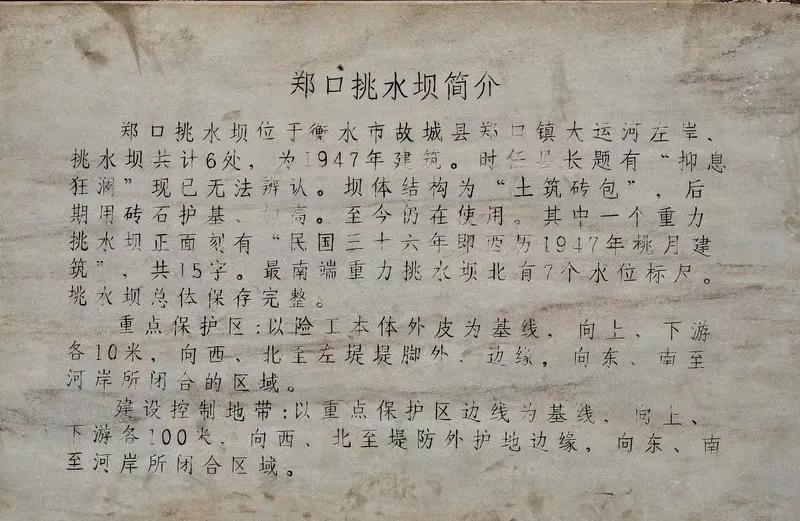 郑口挑水坝简介
郑口挑水坝位于衡水市故城县郑口镇大运河左岸、
挑水坝共计6处，为1947年建筑。时任县长题有“抑息
狂澜”现已无法辨认。坝体结构为“土筑砖包”，后
期用砖石护基、加高。至今仍在使用。其中一个重力
挑水坝正面刻有“民国三十六年即西历1947年桃月建
筑”，共15字。最南端重力挑水坝北有7个水位标尺。
挑水坝总体保存完整。
重点保护区：以险工本体外皮为基线，向上、下游
各10米，向西、北至左堤堤脚外 边缘，向东、南至
河岸所闭合的区域。
建设控制地带：以重点保护区边线为基线，向上、
下游各100米，向西、北至堤防外护地边缘，向东、南
至河岸所闭合区域。